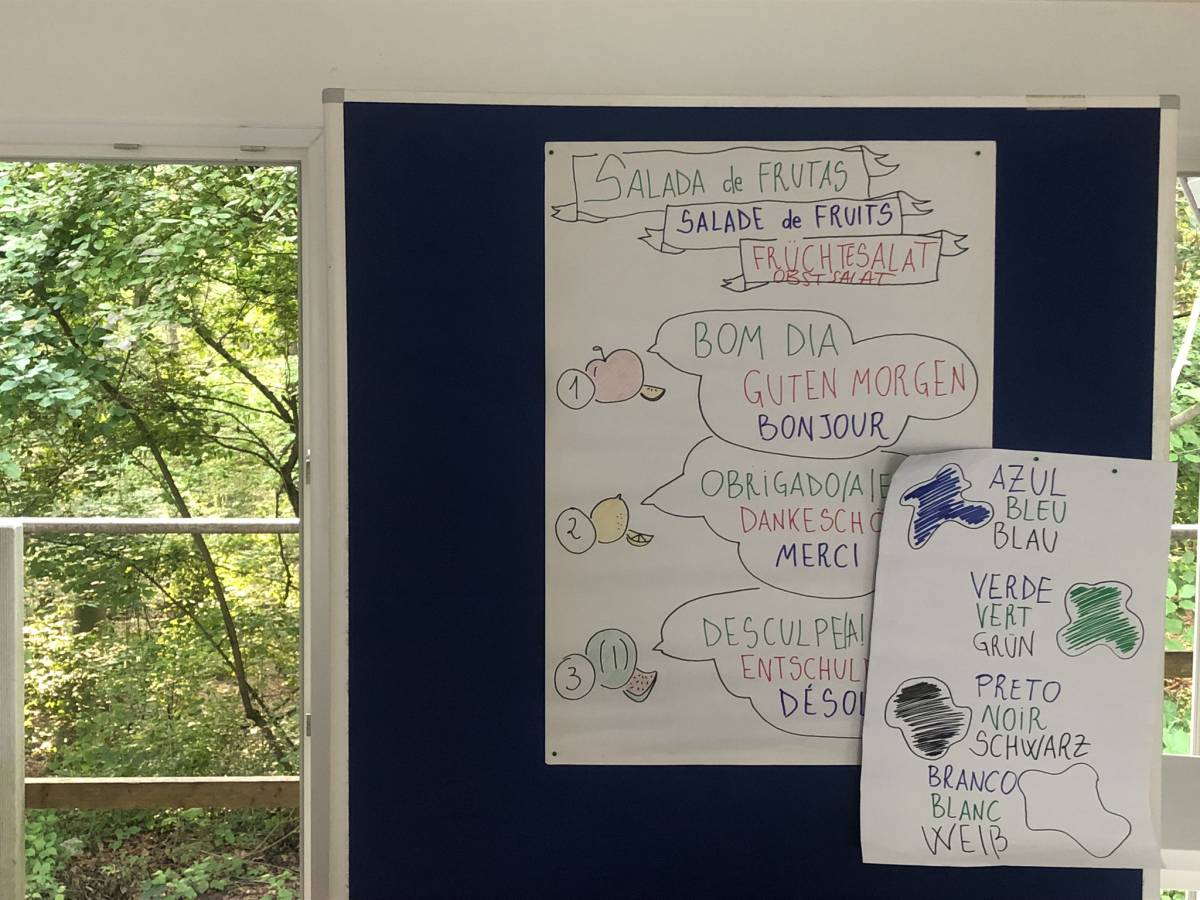 SALADA de FRUTAS
SALADE de FRUITS
FRÜCHTESALAT
OBSTSALAT
1
BOM DIA
GUTEN MORGEN
BONJOUR
2
OBRIGADO/A/E
DANKESCHÖ
MERCI
3
DESCULPE(A!
ENTSCHUL
DÉSOL
AZUL
BLEU
BLAU
VERDE
VERT
GRÜN
PRETO
NOIR
SCHWARZ
BRANCO
BLANC
WEIß